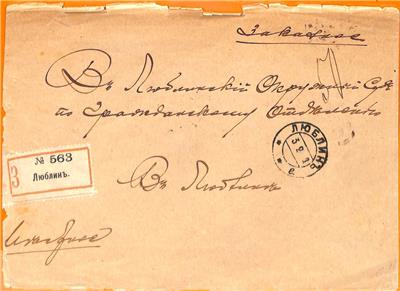 Заказное
Въ Люблинскій Окружный Судъ
по Гражданскому Отдѣленію
ЛЮБЛИНЪ
№ 563
З
Люблинъ.
Въ Люблинѣ